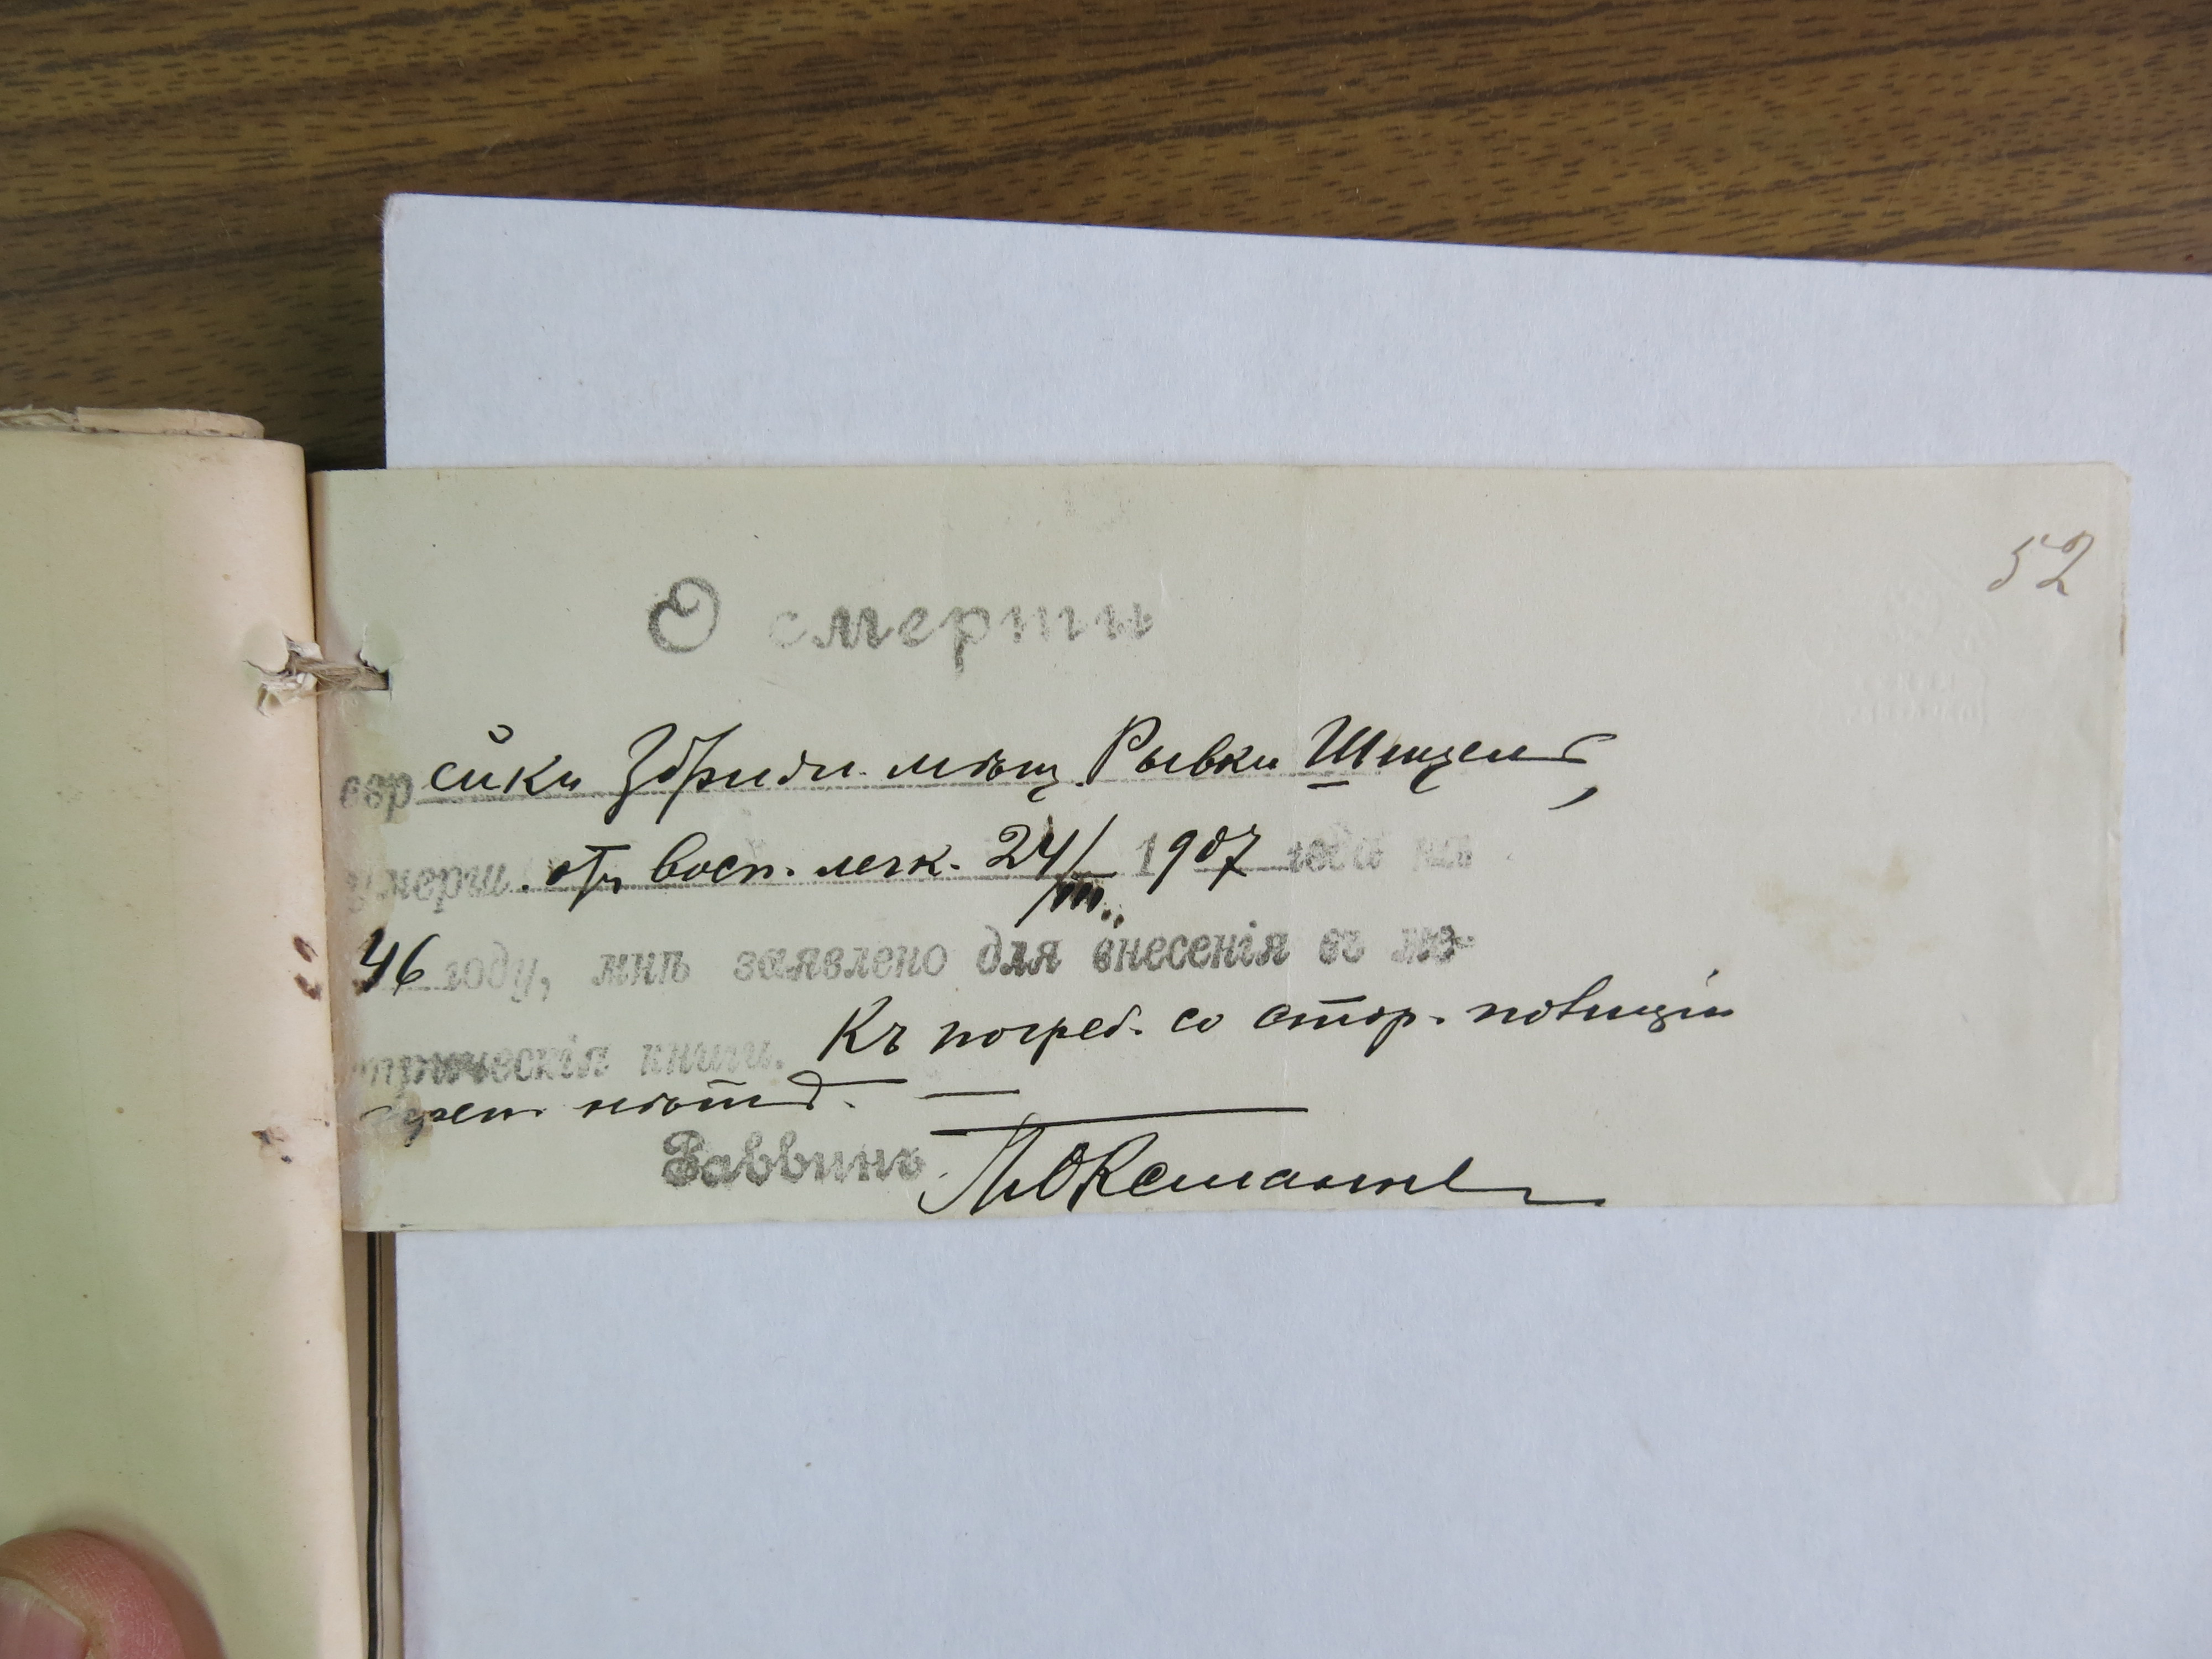 52
О смерти
еврейки Збриж. мѣщ. Рывки Шпицель,
умерш. отъ восп. легк. 24/III 1907 года на
46 году, мнѣ заявлено для внесенія въ ме-
трическія книги. Къ погреб. со стор. полиціи
препят. нѣтъ.
Раввинъ